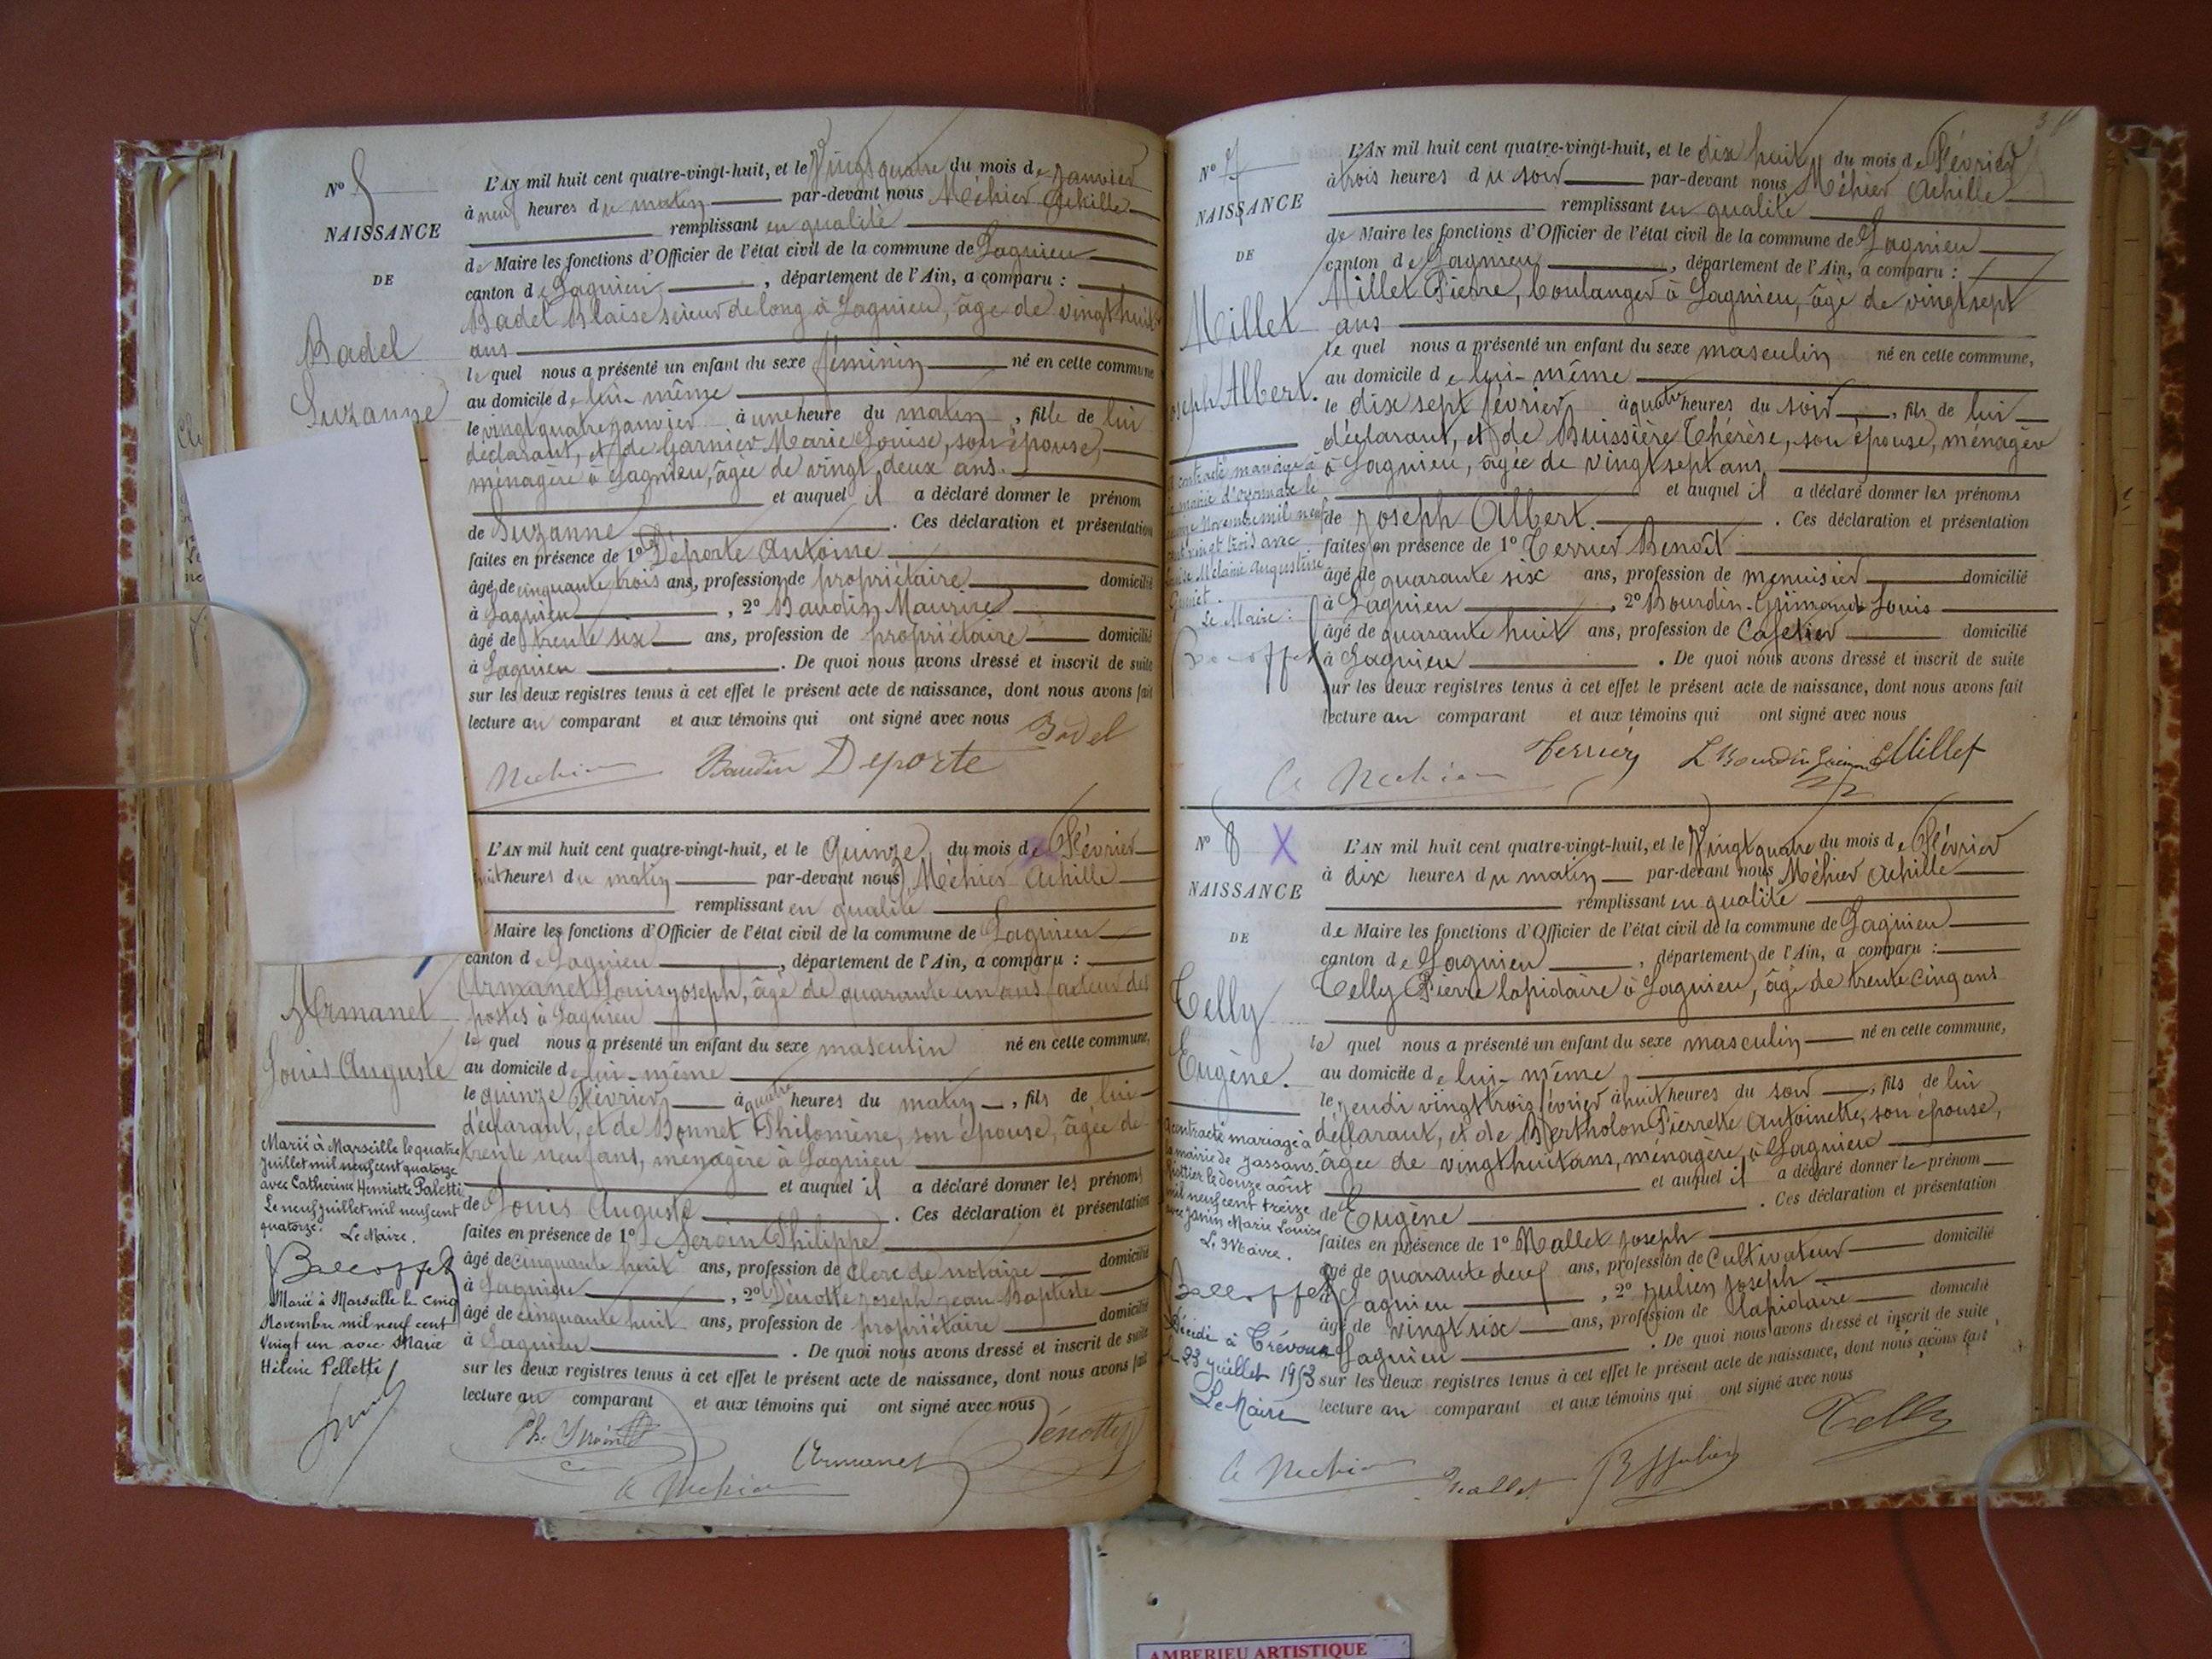 N° 5
NAISSANCE
DE
Badel
Suzanne
L'AN mil huit cent quatre-vingt-huit, et le Vingt quatre du mois de Janvier
à neuf heures du matin par-devant nous Méhier Achille
remplissant en qualité
de Maire les fonctions d'Officier de l'état civil de la commune de Lagnieu
canton de Lagnieu, département de l'Ain, a comparu :
Badel Blaise scieur de long à Lagnieu, âgé de vingt huit
ans
lequel nous a présenté un enfant du sexe féminin né en cette commune
au domicile de lui-même
le vingt quatre janvier à une heure du matin, fille de lui
déclarant, et de Garnier Marie Louise, son épouse,
ménagère à Lagnieu, âgée de vingt deux ans.
et auquel il a déclaré donner le prénom
de Suzanne. Ces déclaration et présentation
faites en présence de 1° Déporte Antoine
âgé de cinquante trois ans, profession de propriétaire domicilié
à Lagnieu, 2° Baudin Maurice
âgé de trente six ans, profession de propriétaire domicilié
à Lagnieu. De quoi nous avons dressé et inscrit de suite
sur les deux registres tenus à cet effet le présent acte de naissance, dont nous avons fait
lecture au comparant et aux témoins qui ont signé avec nous
Badel
Mehier Baudin Deporte
Armanet
Louis Auguste
Marié à Marseille le quatre
juillet mil neuf cent quatorze
avec Catherine Henriette Paletti
Le neuf juillet mil neuf cent
quatorze. Le Maire.
Balloffet
Marié à Marseille le cinq
Novembre mil neuf cent
vingt un avec Marie
Hélène Pelletti
L'AN mil huit cent quatre-vingt-huit, et le Quinze du mois de Février
huit heures du matin par-devant nous Méhier Achille
remplissant en qualité
Maire les fonctions d'Officier de l'état civil de la commune de Lagnieu
canton de Lagnieu, département de l'Ain, a comparu :
Armanet Louis Joseph, âgé de quarante un ans facteur des
postes à Lagnieu
lequel nous a présenté un enfant du sexe masculin né en cette commune,
au domicile de lui-même
le quinze Février à quatre heures du matin, fils de lui
déclarant, et de Bonnet Philomène, son épouse, âgée de
trente neuf ans, ménagère à Lagnieu
et auquel il a déclaré donner les prénoms
de Louis Auguste. Ces déclaration et présentation
faites en présence de 1° Philippe
âgé de cinquante huit ans, profession de clerc de notaire domicilié
à Lagnieu, 2° Dénotte Joseph Jean Baptiste
âgé de cinquante huit ans, profession de propriétaire domicilié
à Lagnieu. De quoi nous avons dressé et inscrit de suite
sur les deux registres tenus à cet effet le présent acte de naissance, dont nous avons fait
lecture au comparant et aux témoins qui ont signé avec nous
Armanet Dénotte
A Mehier
N° 7
NAISSANCE
DE
Millet
Joseph Albert.
A contracté mariage à
la mairie d'oyonnax le
novembre mil neuf
cent vingt trois avec
Mélanie Augustine
Le Maire :
Balloffet
L'AN mil huit cent quatre-vingt-huit, et le dix huit du mois de Février
à trois heures du soir par-devant nous Méhier Achille
remplissant en qualité
de Maire les fonctions d'Officier de l'état civil de la commune de Lagnieu
canton de Lagnieu, département de l'Ain, a comparu :
Millet Pierre, boulanger à Lagnieu, âgé de vingt sept
ans
lequel nous a présenté un enfant du sexe masculin né en cette commune,
au domicile de lui-même
le dix sept février à quatre heures du soir, fils de lui
déclarant, et de Buissière Thérèse, son épouse, ménagère
à Lagnieu, âgée de vingt sept ans
et auquel il a déclaré donner les prénoms
de Joseph Albert. Ces déclaration et présentation
faites en présence de 1° Terrier Benoît
âgé de quarante six ans, profession de menuisier domicilié
à Lagnieu, 2° Bourdin-Grimaud Louis
âgé de quarante huit ans, profession de Cafetier domicilié
à Lagnieu. De quoi nous avons dressé et inscrit de suite
sur les deux registres tenus à cet effet le présent acte de naissance, dont nous avons fait
lecture au comparant et aux témoins qui ont signé avec nous
A Mehier Terrier L Bourdin Millet
N° 8 X
NAISSANCE
DE
Telly
Eugène.
A contracté mariage à
la mairie de Jassans-
Riottier le douze août
mil neuf cent treize
avec Janin Marie Louise
Le Maire.
Balloffet
Décédé à Trévoux
le 23 juillet 1953
Le Maire
L'AN mil huit cent quatre-vingt-huit, et le Vingt quatre du mois de Février
à dix heures du matin par-devant nous Méhier Achille
remplissant en qualité
de Maire les fonctions d'Officier de l'état civil de la commune de Lagnieu
canton de Lagnieu, département de l'Ain, a comparu :
Telly Pierre lapidaire à Lagnieu, âgé de trente cinq ans
lequel nous a présenté un enfant du sexe masculin né en cette commune,
au domicile de lui-même
le jeudi vingt trois février à huit heures du soir, fils de lui
déclarant, et de Bertholon Pierrette Antoinette, son épouse,
âgée de vingt huit ans, ménagère à Lagnieu
et auquel il a déclaré donner le prénom
de Eugène. Ces déclaration et présentation
faites en présence de 1° Mallet Joseph
âgé de quarante deux ans, profession de Cultivateur domicilié
à Lagnieu, 2° Julien Joseph
âgé de vingt six ans, profession de lapidaire domicilié
à Lagnieu. De quoi nous avons dressé et inscrit de suite
sur les deux registres tenus à cet effet le présent acte de naissance, dont nous avons fait
lecture au comparant et aux témoins qui ont signé avec nous
Telly
A Mehier Mallet Julien
AMBERIEU ARTISTIQUE